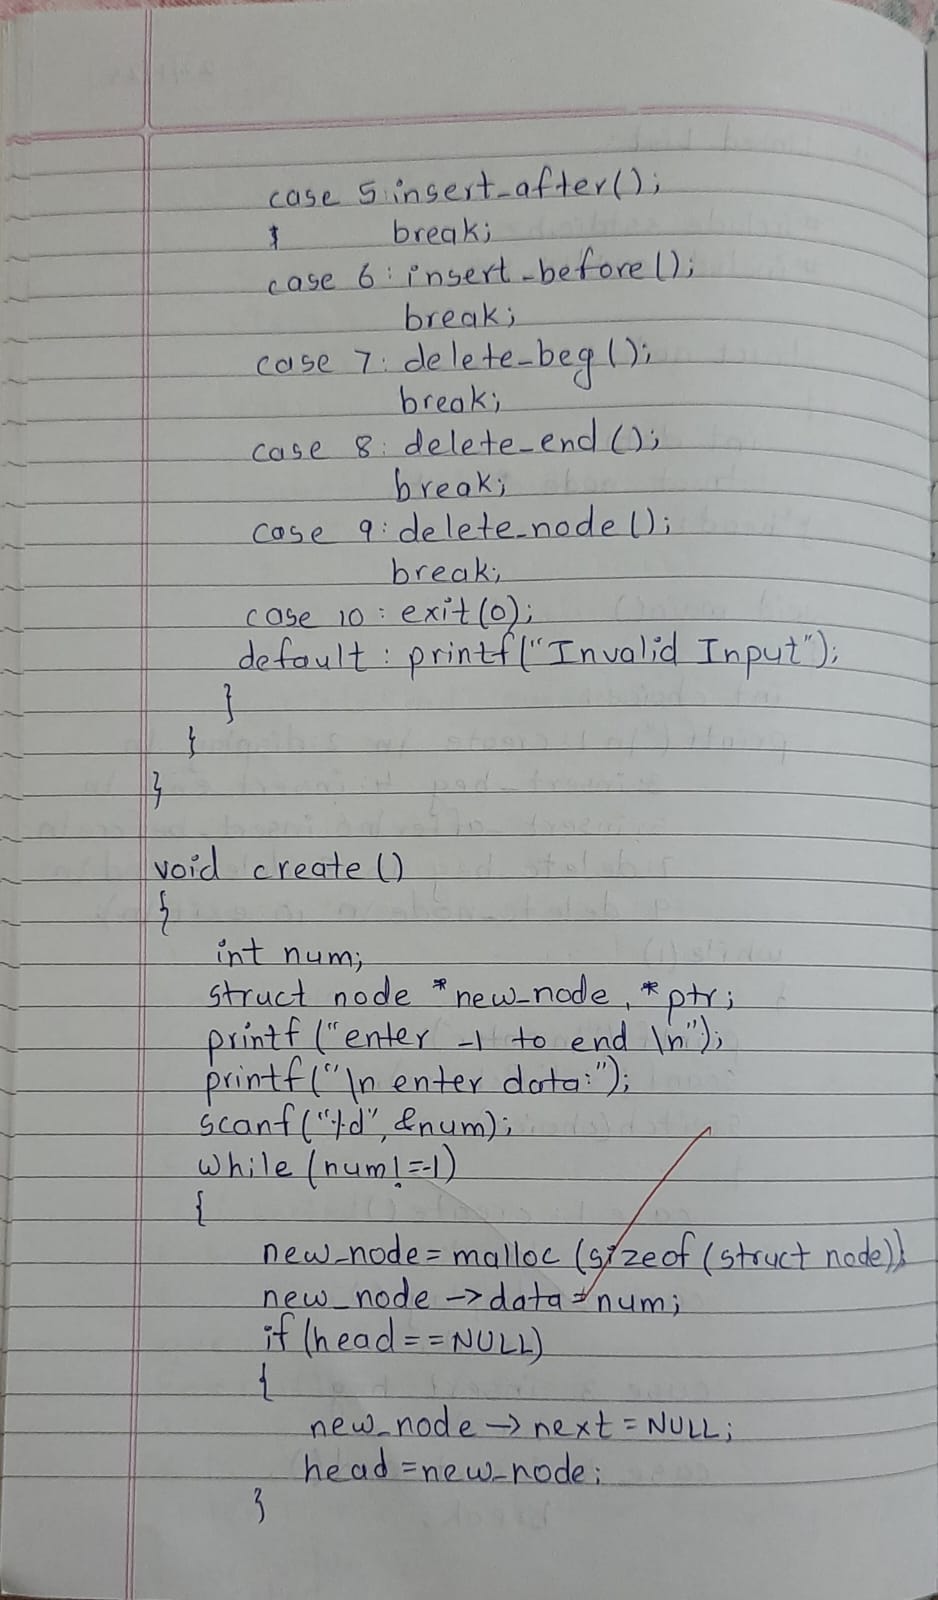 case 5:insert_after();
break;
case 6: insert_before();
break;
case 7: delete_beg();
break;
case 8: delete_end();
break;
case 9: delete_node();
break;
case 10: exit(0);
default: printf("Invalid Input");
}
}
}
void create()
{
int num;
struct node *new_node, *ptr;
printf("enter -1 to end \n");
printf("\n enter data:");
scanf("%d", &num);
while (num!=-1)
{
new_node = malloc (sizeof (struct node));
new_node -> data = num;
if (head == NULL)
{
new_node -> next = NULL;
head = new_node;
}